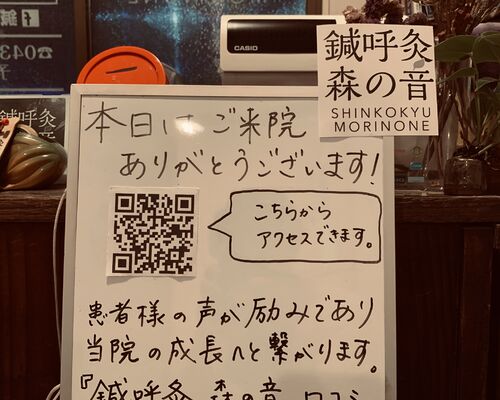 CASIO
鍼呼灸
森の音
SHINKOKYU
MORINONE
鍼呼灸
本日はご来院
ありがとうございます!
こちらから
アクセスできます。
患者様の声が励みであり
当院の成長へと繋がります。
『鍼呼灸 森の音 口コミ